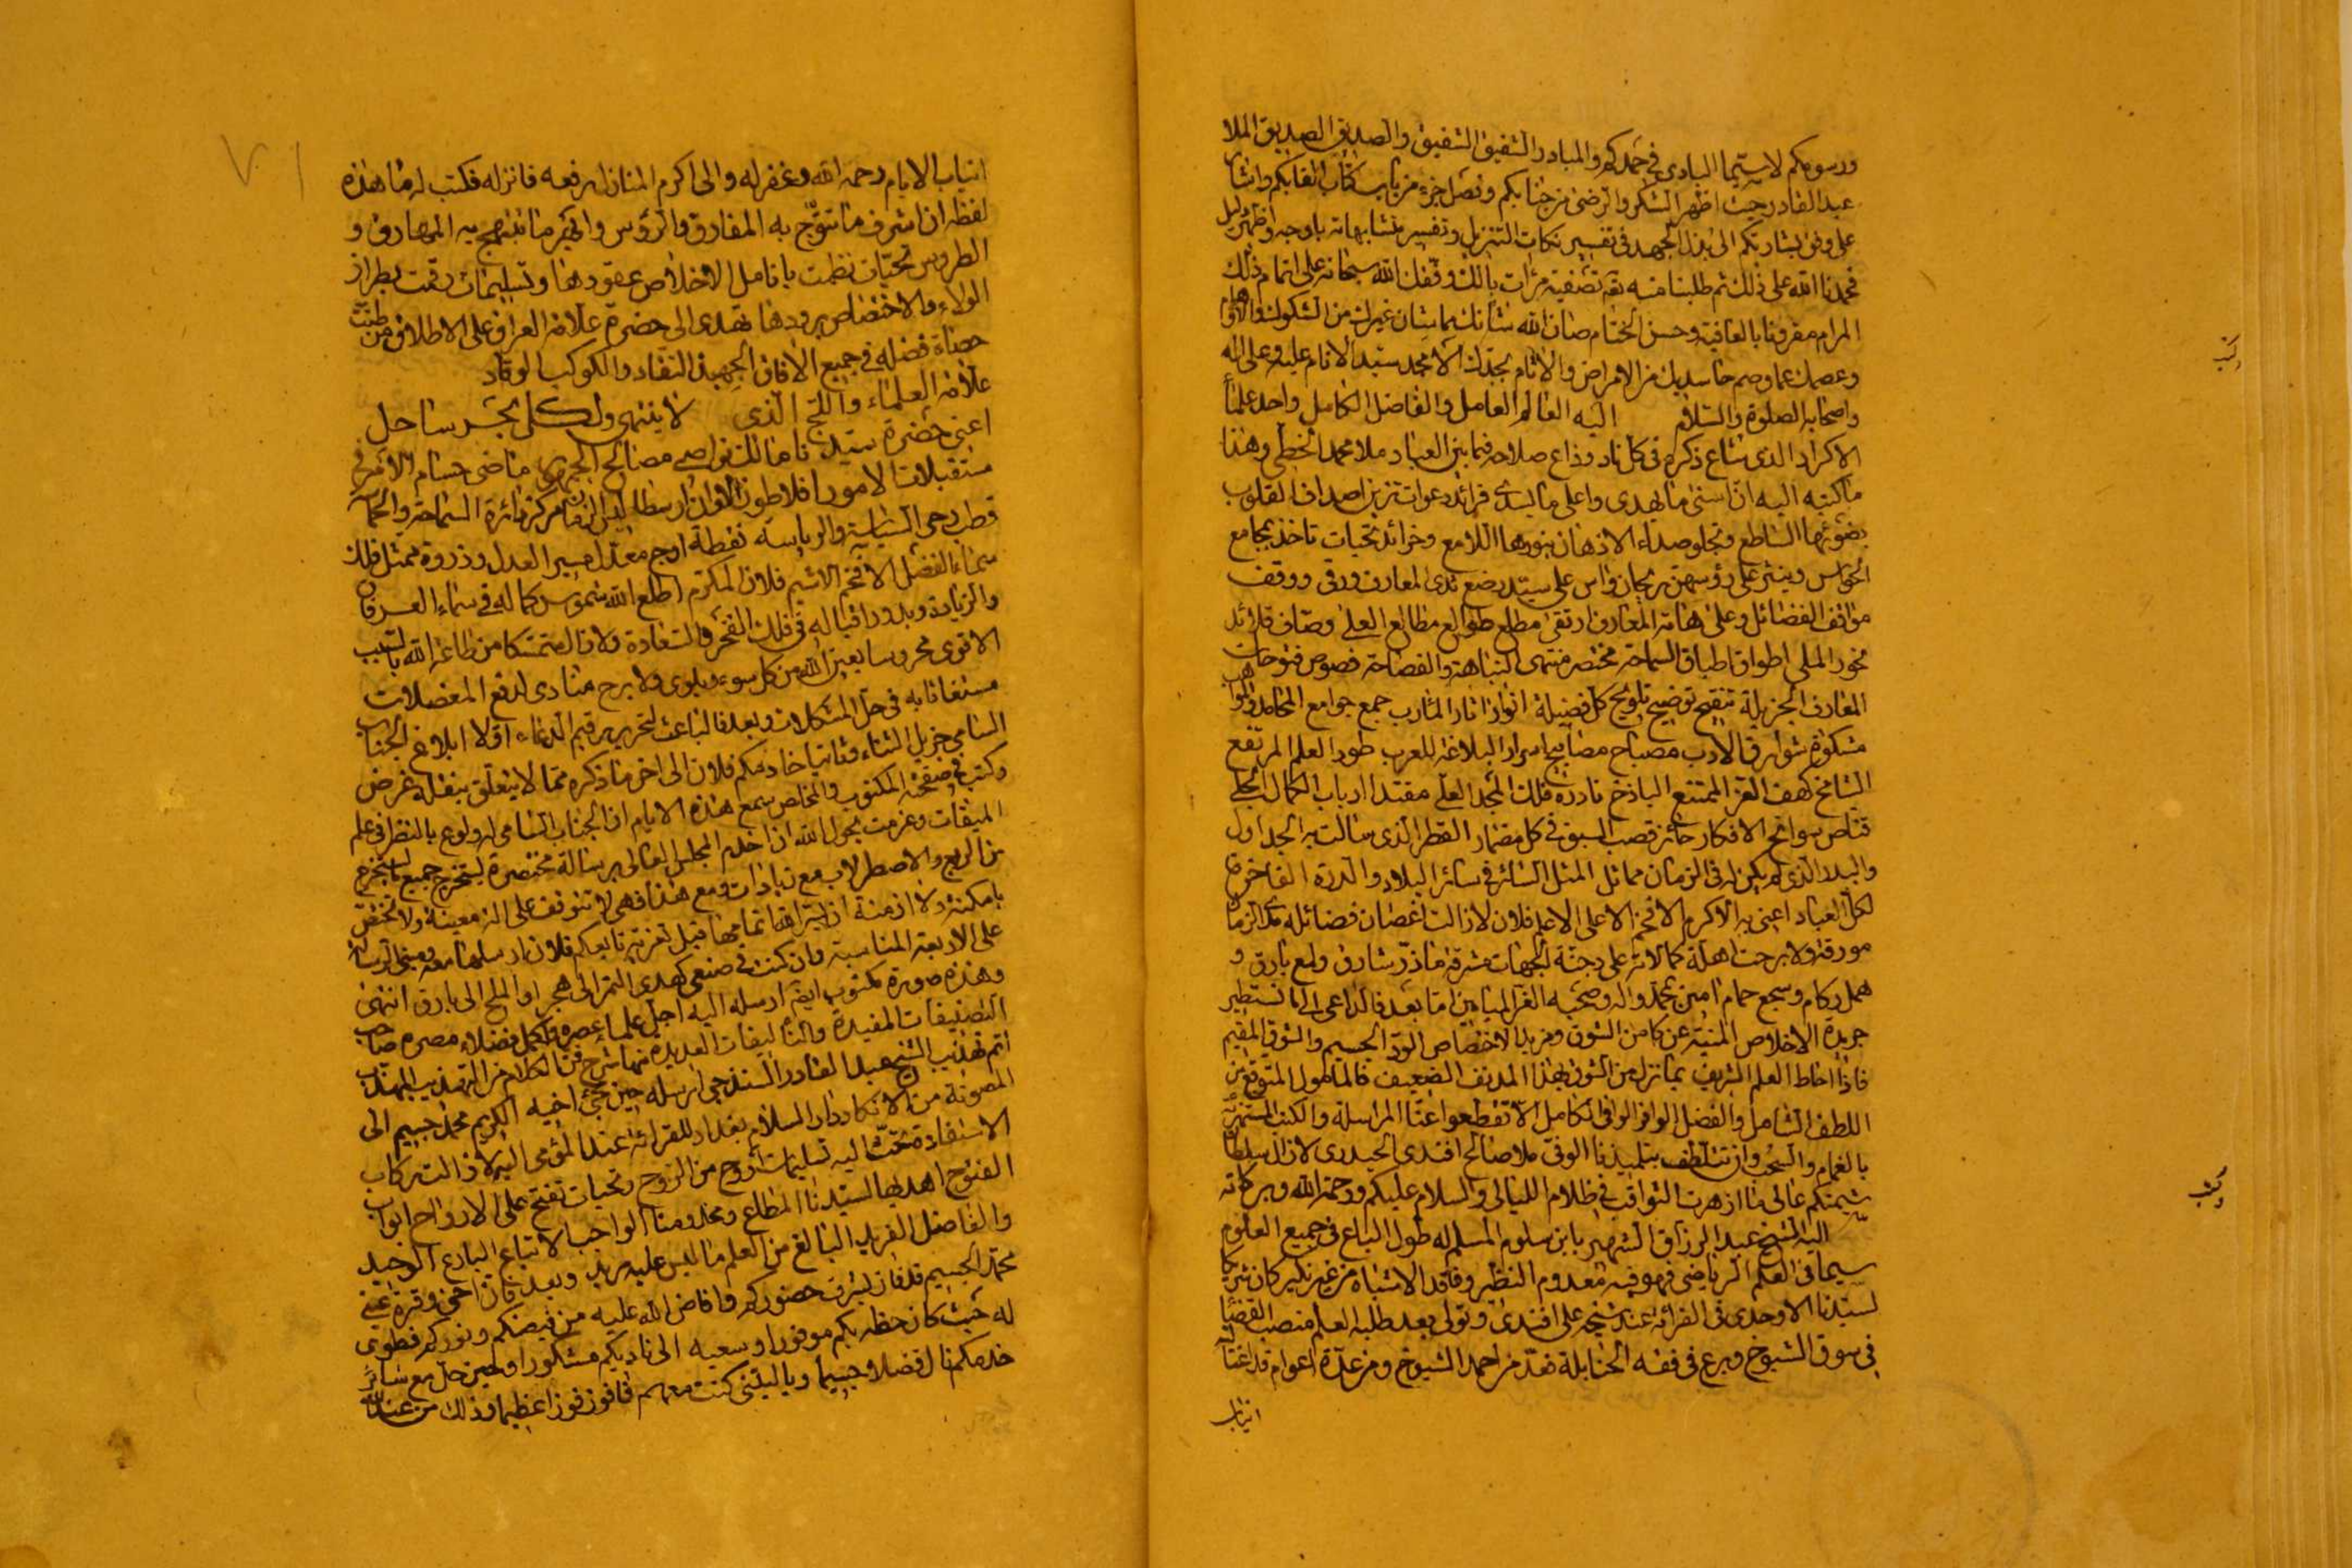 ورسومكم لاسيما البادى فى حمدكم والمبادر الشفيق الشفيق والصديق الصديق الملا
عبد القادر حيث اظهر الشكر والرضى من جنابكم وفصل جزء من باب كتاب القابكم واشار
على وفق بشارتكم الى بذل الجهد فى تفسير نكات التنزيل وتفسير متشابهاته باوجه واظهر دليل
فحمدنا الله على ذلك ثم طلبنا منه تصفية مرآت بالك وفقك الله سبحانه على اتمام ذلك
المرام مقرونا بالعافية وحسن الختام صان الله شانك بما شان غيرك من الشكوك والاوهام
وعصمك عما وصم حاسديك من الامراض والاثام بجدك الامجد سيد الانام عليه وعلى اله
واصحابه الصلوة والسلام اليه العالم العامل والفاضل الكامل واحد علماء
الاكراد الذى شاع ذكره فى كل ناد وذاع صلاحه فيما بين العباد ملا محمد الخطى وهذا
ما كتبه اليه ان اسنى ما يهدى واعلى ما يسدى فرائد دعوات تزين اصداف القلوب
بضوئها الساطع وتجلو صداء الاذهان بنورها اللامع وخرائد تحيات تاخذ بمجامع
الحواس وينثر على رؤسهن ريحان واس على سيد رضع ثدى المعارف ورقى ووقف
مواقف الفضائل وعلى هامة المعارف ارتقى مطلع طوالع مطالع العلى وصاف قلائد
نحور الملى اطواق اطباق السماحة مختصر منتهى النباهة والفصاحة فصوص فتوحات
المعارف الجزيلة تنقيح توضيح تلويح كل فضيلة انوار انار المارب جمع جوامع المحامد والمواهب
مشكوة شوارق الادب مصباح مصابيح اسرار البلاغة للعرب طود العلم المرتفع
الشامخ كهف العز الممتنع الباذخ نادرة فلك المجد العلى مقتدا ارباب الكمال الجلى
قناص سوانح الافكار حائز قصب السبق فى كل مضمار القطر الذى سالت به الجداول
والبلد الذى لم يكن له فى الزمان مماثل المثل السائر فى سائر البلاد والدرة الفاخرة
لكل العباد اعنى به الاكرم الافخم الاعلى الاعلم فلان لا زالت اغصان فضائله مدى الزمان
مورقة ولا برحت اهلة كمالاته على وجنة الجهات مشرقة ما ذر شارق ولمع بارق و
همل ركام وسجع حمام امين بمحمد واله وصحبه الغر الميامين اما بعد فالداعى الى ما تستطير
جريدة الاخلاص المنبئة عن كامن الشوق ومزيد الاختصاص الود الجسيم والشوق المقيم
فاذا احاط العلم الشريف بما نزل من الشوق بهذا المدنف الضعيف فالمامول المتوقع من
اللطف الشامل والفضل الوافر الوافى الكامل الا تقطعوا عنا المراسلة والكتب المستهزئة
بالغمام والسحب وان تتلطف بتلميذنا الوفى ملا صالح افندى الحيدرى لا زال سلطان
شيمتكم عالى ما ازهرت الثواقب فى ظلام الليالى والسلام عليكم ورحمة الله وبركاته
اليه الشيخ عبد الرزاق الشهير بابن سلوم المسلم له طول الباع فى جميع العلوم
سيما فى العلم الرياضى فهو فيه معدوم النظير وفاقد الاشباه من غير نكير كان شريكا
لسيدنا الاوحدى فى القرائة عند شيخه على افندى وتولى بعد طلبه العلم منصب القضاء
فى سوق الشيوخ وبرع فى فقه الحنابلة فعد من احمد الشيوخ ومن عدة اعوام قد اغتاله
انياب
انياب الايام رحمه الله وغفر له والى اكرم المنازل رفعه فانزله فكتب له ما هذه
لفظه ان اشرف ما تتوج به المفارق والرؤس وابهى ما تبتهج به المهارق و
الطروس تحيات نظمت بانامل الاخلاص عقودها وتسليمات رقمت بطراز
الولاء والاختصاص برودها تهدى الى حضرة علامة العراق على الاطلاق من طنت
حصاة فضله فى جميع الافاق الجهبذ النقاد والكوكب الوقاد
علامة العلماء واللج الذى لا ينتهى ولكل بحر ساحل
اعنى حضرة سيدنا مالك نواصى مصالح الجمهور ماضى حسام الامر فى
مستقبلات الامور افلاطون الاوان ارسطاليس الزمان مركز دائرة السماحة والحماسة
قطب رحى السياسة والرياسة نقطة اوج معدل مسير العدل وذروة ممثل فلك
سماء الفضل الافخم الاشيم فلان المكرم اطلع الله شموس كماله فى سماء العرفان
والزيادة وبدور اقباله فى فلك الفخر والسعادة ولا زال متمسكا من طاعة الله بالسبب
الاقوى محروسا بعين الله من كل سوء وبلوى ولا برح منادى لدفع المعضلات
مستغاثا به فى حل المشكلات وبعد فالباعث لتحرير رقيم الدعاء اولا ابلاغ الجناب
السامى جزيل الثناء وثانيا خادمكم فلان الى اخر ما ذكره مما لا يتعلق بنقله غرض
وكتب فى صفحة المكتوب والمخلص سمع هذه الايام ان الجناب السامى له ولوع بالنظر فى علم
الميقات وعزمت بحول الله ان اخدم المجلس العالى برسالة مختصرة يستخرج جميع ما يستخرج
من الربع والاصطرلاب مع زيادات ومع هذا فهى لا تتوقف على الة معينة ولا تختص
بامكنة ولا ازمنة ان يتفق اتمامها قبل تعزية تابعكم فلان نرسلها معه ومبنى الرسالة
على الاربعة المناسبة وان كنت فى صنعى كهدى التمر الى هجر او الملح الى بارق انتهى
وهذه صورة مكتوب ايضا ارسله اليه اجل علماء عصره واكمل فضلاء مصره صاحب
التصنيفات المفيدة والتاليفات العديدة منها شرح فن الكلام من التهذيب المهذب
اتم تهذيب الشيخ عبد القادر السنندجى ارسله حين مجئ اخيه الكريم محمد جسيم الى
المصونة من الانكاد دار السلام بغداد للقرائة عند المومى اليه لا زالت ركاب
الاستفادة تحث اليه تسليمات اروح من الروح وتحيات تفتح على الارواح ابواب
الفتوح اهديها لسيدنا المطاع ومخدومنا الواجب الاتباع البارع الوحيد
والفاضل الفريد البالغ من العلم ما ليس عليه مزيد وبعد فان اخى وقرة عينى
محمد الجسيم قد فاز بشرف حضوركم وافاض الله عليه من فيضكم ونوركم فطوبى
له حيث كان حظه بكم موفورا وسعيه الى ناديكم مشكورا وحين حل مع سائر
خدمكم نال فضلا جسيما ويا ليتنى كنت معهم فافوز فوزا عظيما وذلك من عند الله